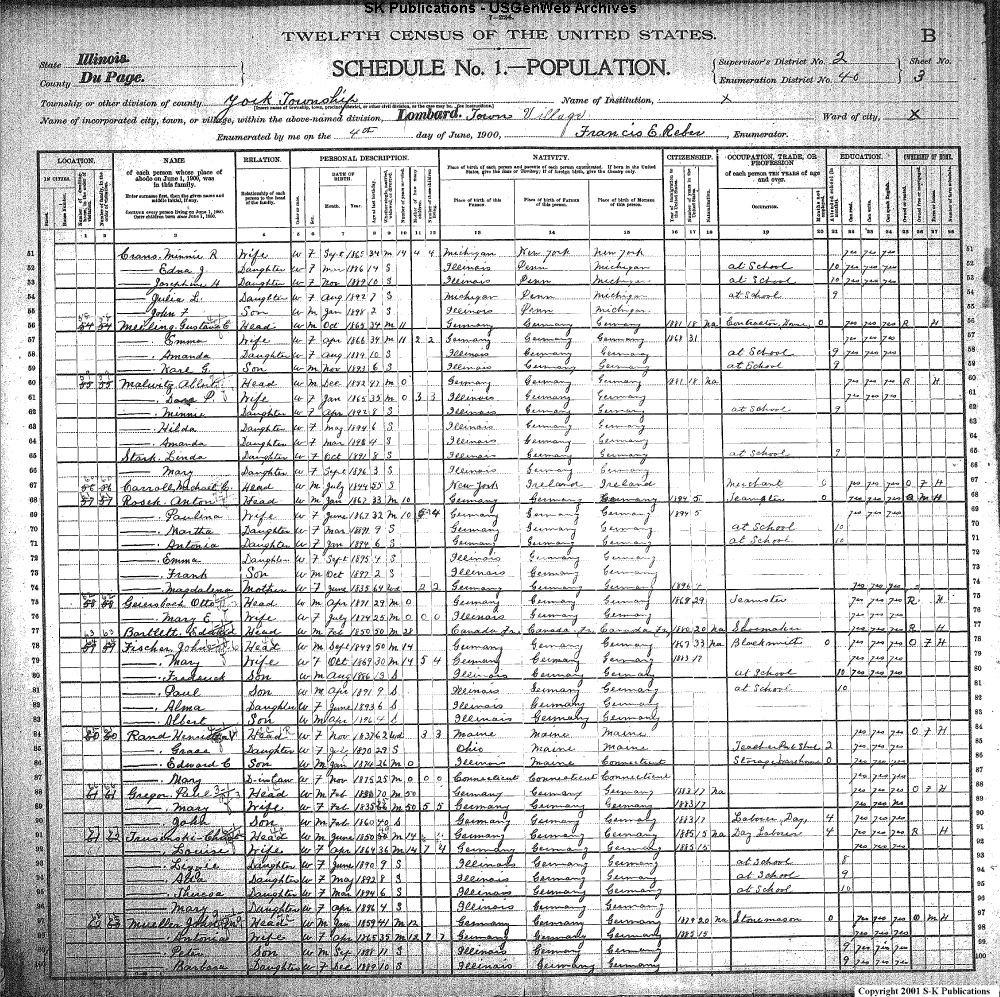 SK Publications - USGenWeb Archives
7-224.
TWELFTH CENSUS OF THE UNITED STATES.
B
State Illinois
County Du Page.
SCHEDULE No. 1.—POPULATION.
Supervisor's District No. 2
Enumeration District No. 40
Sheet No. 3
Township or other division of county York Township
Name of Institution, X
Name of incorporated city, town, or village, within the above-named division, Lombard. Town Village
Ward of city, X
Enumerated by me on the 4th day of June, 1900, Francis E. Reber, Enumerator.
LOCATION. NAME RELATION. PERSONAL DESCRIPTION. NATIVITY. CITIZENSHIP. OCCUPATION, TRADE, OR PROFESSION EDUCATION. OWNERSHIP OF HOME.
IN CITIES.
of each person whose place of abode on June 1, 1900, was in this family.
Relationship of each person to the head of the family.
DATE OF BIRTH.
of each person TEN YEARS of age and over.
Place of birth of this Person. Place of birth of Father of this person. Place of birth of Mother of this person.
Month. Year. Occupation.
51 Crans, Minnie R Wife W F Sept 1865 34 M 14 4 4 Michigan New York New York yes yes yes
52 Edna J. Daughter W F Mar 1886 14 S Illinois Penn Michigan at School 10 yes yes yes
53 Josephine H Daughter W F Nov 1889 10 S Illinois Penn Michigan at School 10 yes yes yes
54 Julia L. Daughter W F Aug 1892 7 S Michigan Penn Michigan at School 9
55 John F Son W M Jan 1898 2 S Illinois Penn Michigan
56 54 54 Gustav E Head W M Oct 1865 34 M 11 Germany Germany Germany 1881 18 na Contractor, House 0 yes yes yes R H
57 Emma Wife W F Apr 1866 34 M 11 2 2 Germany Germany Germany 1868 31 yes yes yes
58 Amanda Daughter W F Aug 1889 10 S Illinois Germany Germany at School 9 yes yes yes
59 Karl G. Son W M Nov 1893 6 S Illinois Germany Germany at School 9
60 55 55 Malwitz, Head W M Dec 1852 47 M 0 Germany Germany Germany 1881 18 na yes yes yes R H
61 Dora P. Wife W F Jan 1865 35 M 0 3 3 Illinois Germany Germany yes yes yes
62 Minnie Daughter W F Apr 1892 8 S Illinois Germany Germany at School 9
63 Hilda Daughter W F May 1894 6 S Illinois Germany Germany
64 Amanda Daughter W F Mar 1896 4 S Illinois Germany Germany
65 Stark, Linda Daughter W F Oct 1891 8 S Illinois Germany Germany at School 9
66 Mary Daughter W F Sept 1896 3 S Illinois Germany Germany
67 56 56 Carroll, Michael C. Head W M July 1844 55 S New York Ireland Ireland Merchant 0 yes yes yes O F H
68 57 57 Rosch, Anton Head W M Jan 1867 33 M 10 Germany Germany Germany 1894 5 Teamster 0 yes yes yes O M H
69 Paulina Wife W F June 1867 32 M 10 5 4 Germany Germany Germany 1894 5 yes yes yes
70 Martha Daughter W F Mar 1891 9 S Germany Germany Germany at School 10
71 Antonia Daughter W F Jan 1894 6 S Germany Germany Germany at School 10
72 Emma Daughter W F Sept 1895 4 S Illinois Germany Germany
73 Frank Son W M Oct 1897 2 S Illinois Germany Germany
74 Magdalena Mother W F June 1835 64 Wd 2 2 Germany Germany Germany 1896 4 yes yes yes
75 58 58 Geiersbach, Otto Head W M Apr 1871 29 M 0 Germany Germany Germany 1868 29 Teamster yes yes yes R H
76 Mary E. Wife W F July 1874 25 M 0 0 0 Illinois Germany Germany yes yes yes
77 Bartlett, Edward Head W M Feb 1850 50 M 28 Canada Fr. Canada Fr. Canada Fr. 1880 20 na Shoemaker yes yes yes R H
78 59 59 Fischer, John Head W M Sept 1849 50 M 14 Germany Germany Germany 1867 33 na Blacksmith 0 yes yes yes O F H
79 Mary Wife W F Oct 1869 30 M 14 5 4 Germany Germany Germany 1883 17 yes yes yes
80 Frederick Son W M Aug 1886 13 S Illinois Germany Germany at School 10 yes yes yes
81 Paul Son W M Apr 1891 9 S Illinois Germany Germany at School 10
82 Alma Daughter W F June 1893 6 S Illinois Germany Germany
83 Albert Son W M Apr 1896 4 S Illinois Germany Germany
84 60 60 Rand, Head W F Nov 1837 62 Wd 3 3 Maine Maine Maine yes yes yes O F H
85 Grace Daughter W F July 1870 29 S Ohio Maine Maine Teacher 2 yes yes yes
86 Edward E Son W M Jan 1874 26 M 0 Illinois Maine Connecticut Storage warehouse 0 yes yes yes
87 Mary D-in law W F Nov 1875 25 M 0 0 0 Connecticut Connecticut Connecticut yes yes yes
88 61 61 Gregor, Paul Head W M Feb 1830 70 M 50 Germany Germany Germany 1882 17 na yes yes yes O F H
89 Mary Wife W F Feb 1835 M 50 5 5 Germany Germany Germany 1883 17 yes yes no
90 John Son W M Feb 1860 40 S Germany Germany Germany 1883 17 Laborer, Day 4 yes yes yes
91 Head W M June 1850 M 14 Germany Germany Germany 1885 15 na Day Laborer 4 yes yes yes R H
92 Louise Wife W F Apr 1864 36 M 14 7 4 Germany Germany Germany 1885 15 yes yes yes
93 Lizzie Daughter W F June 1890 9 S Illinois Germany Germany at School 8
94 Alta Daughter W F May 1892 8 S Illinois Germany Germany at School 9
95 Theresa Daughter W F Mar 1894 6 S Illinois Germany Germany at School 10
96 Mary Daughter W F Apr 1896 4 S Illinois Germany Germany
97 Mueller, John Head W M Jan 1859 41 M 12 Germany Germany Germany 1879 20 na Stonemason 0 yes yes yes O M H
98 Antonia Wife W F Apr 1865 35 M 12 7 7 Germany Germany Germany 1885 15 yes yes yes
99 Peter Son W M Sep 1888 11 S Illinois Germany Germany 9 yes yes yes
100 Barbara Daughter W F Dec 1889 10 S Illinois Germany Germany 9 yes yes yes
Copyright 2001 S-K Publications